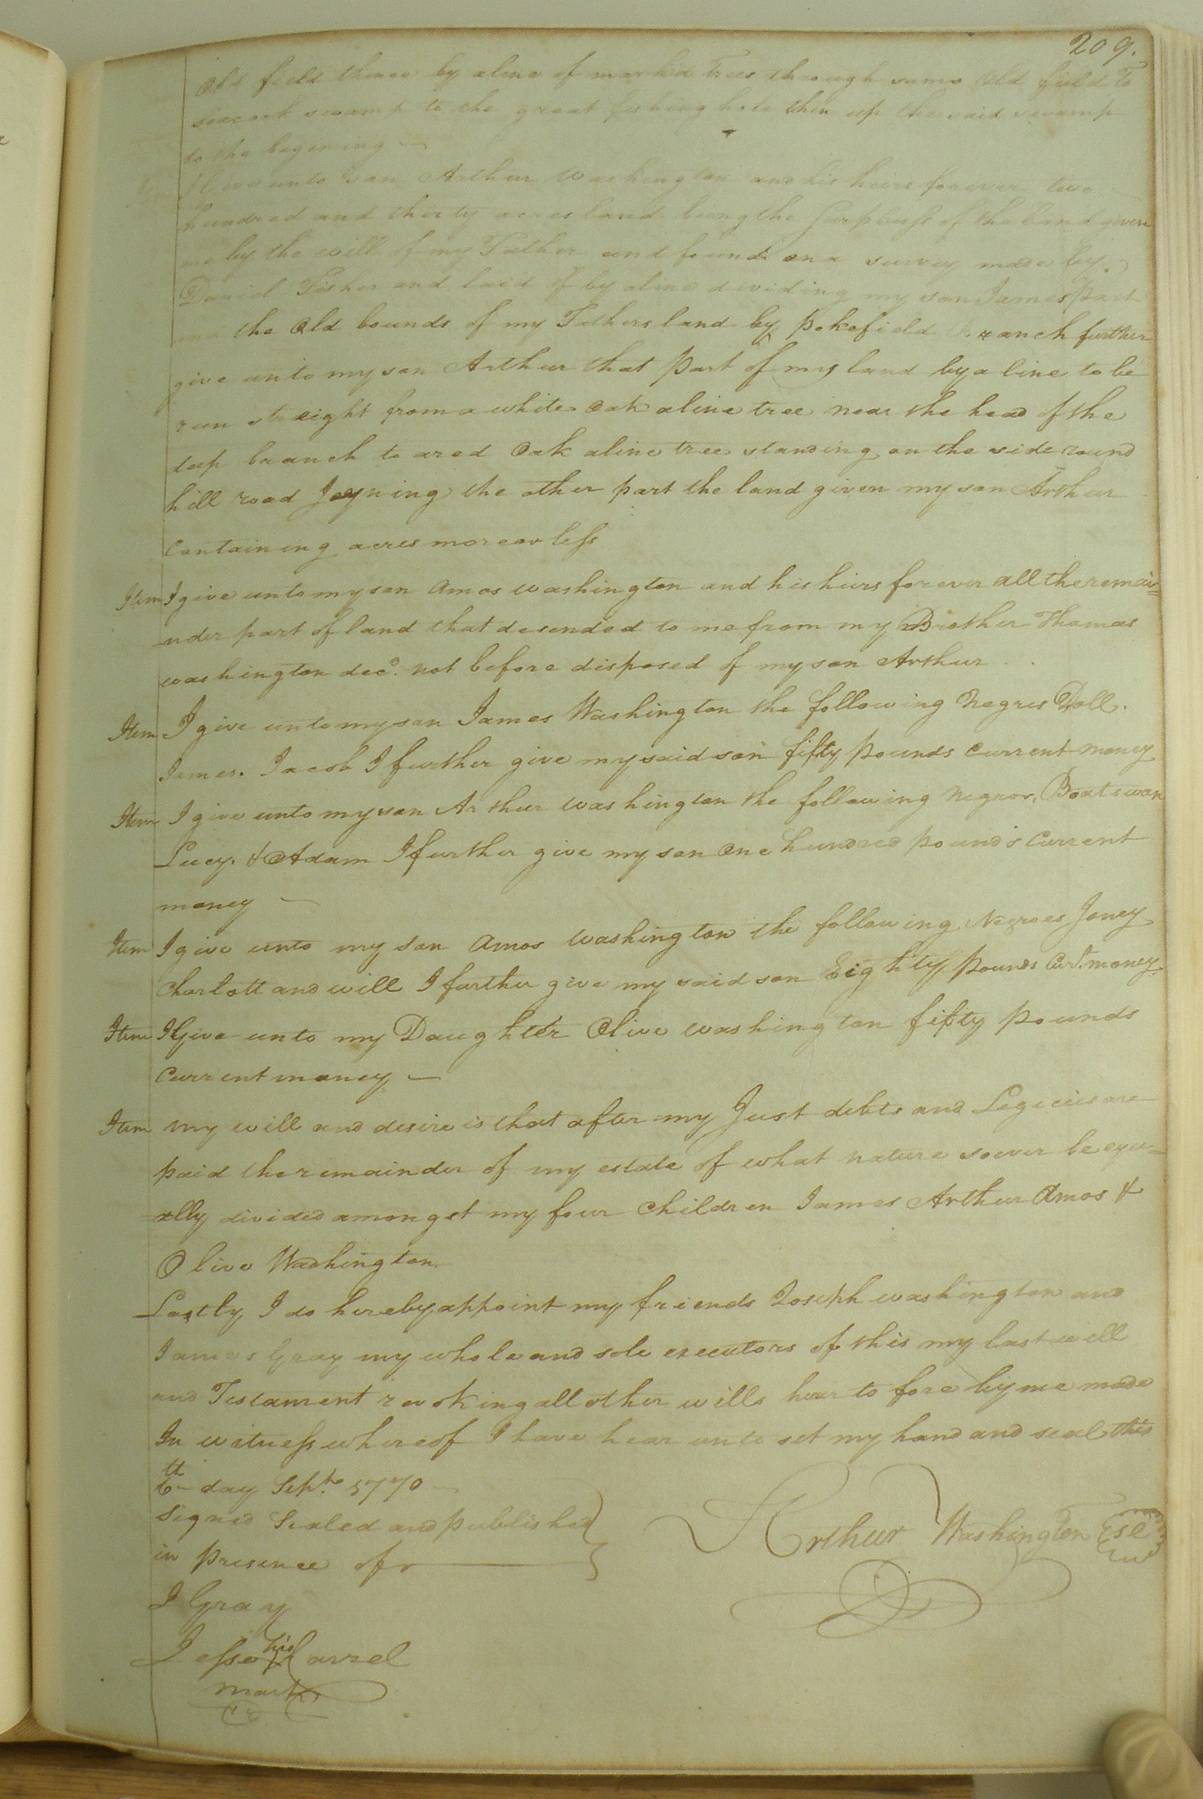 209.
Old field thence by aline of marked Trees through same Old field to
seacock swamp to the great fishing hole then up the said swamp
to the begening
Item I Give unto son Arthur Washington and his heirs forever two
hundred and thirty acres land being the Surplusss of the land given
me by the will of my Father and found on a survey made by
David Fisher and laid of by aline dividing my son James part
the Old bounds of my Fathers land by pokefield Branch further
give unto my son Arthur that part of my land by a line to be
run straight from a white Oak aline tree near the head of the
deep branch to a red Oak aline tree standing on the side round
hill road Joyning the other part the land given my son Arthur
containing acres more or less
Item I give unto my son Amos Washington and his heirs forever all the remai-
nder part of land that desended to me from my Brother Thomas
washington decd. not before disposed of my son Arthur
Item I give unto my son James Washington the following Negres Doll.
James. Jacob I further give my said son fifty pounds current money
Item I give unto my son Arthur washington the following Negros. Boatswan
Lucy. & Adam I further give my son One hundred pounds Current
money
Item I give unto my son Amos Washington the following Negroes Joney
Charlott and will I farther give my said son Eighty pounds Curt. money
Item I Give unto my Daughter Olive washington fifty pounds
current money
Item my will and desire is that after my Just debts and Legecies are
paid the remainder of my estate of what nature soever be equ-
ally divided amongst my four children James Arthur Amos &
Olive Washington
Lastly I do hereby appoint my friends Joseph washington and
James Gray my whole and sole executors of this my last will
and Testament revoking all other wills hear to fore by me made
In witness whereof I have hear unto set my hand and seal this
6th day Sept. 1770
Signed Sealed and published
in presence of
Arthur Washington
J Gray
Jesse his Carrel
mark